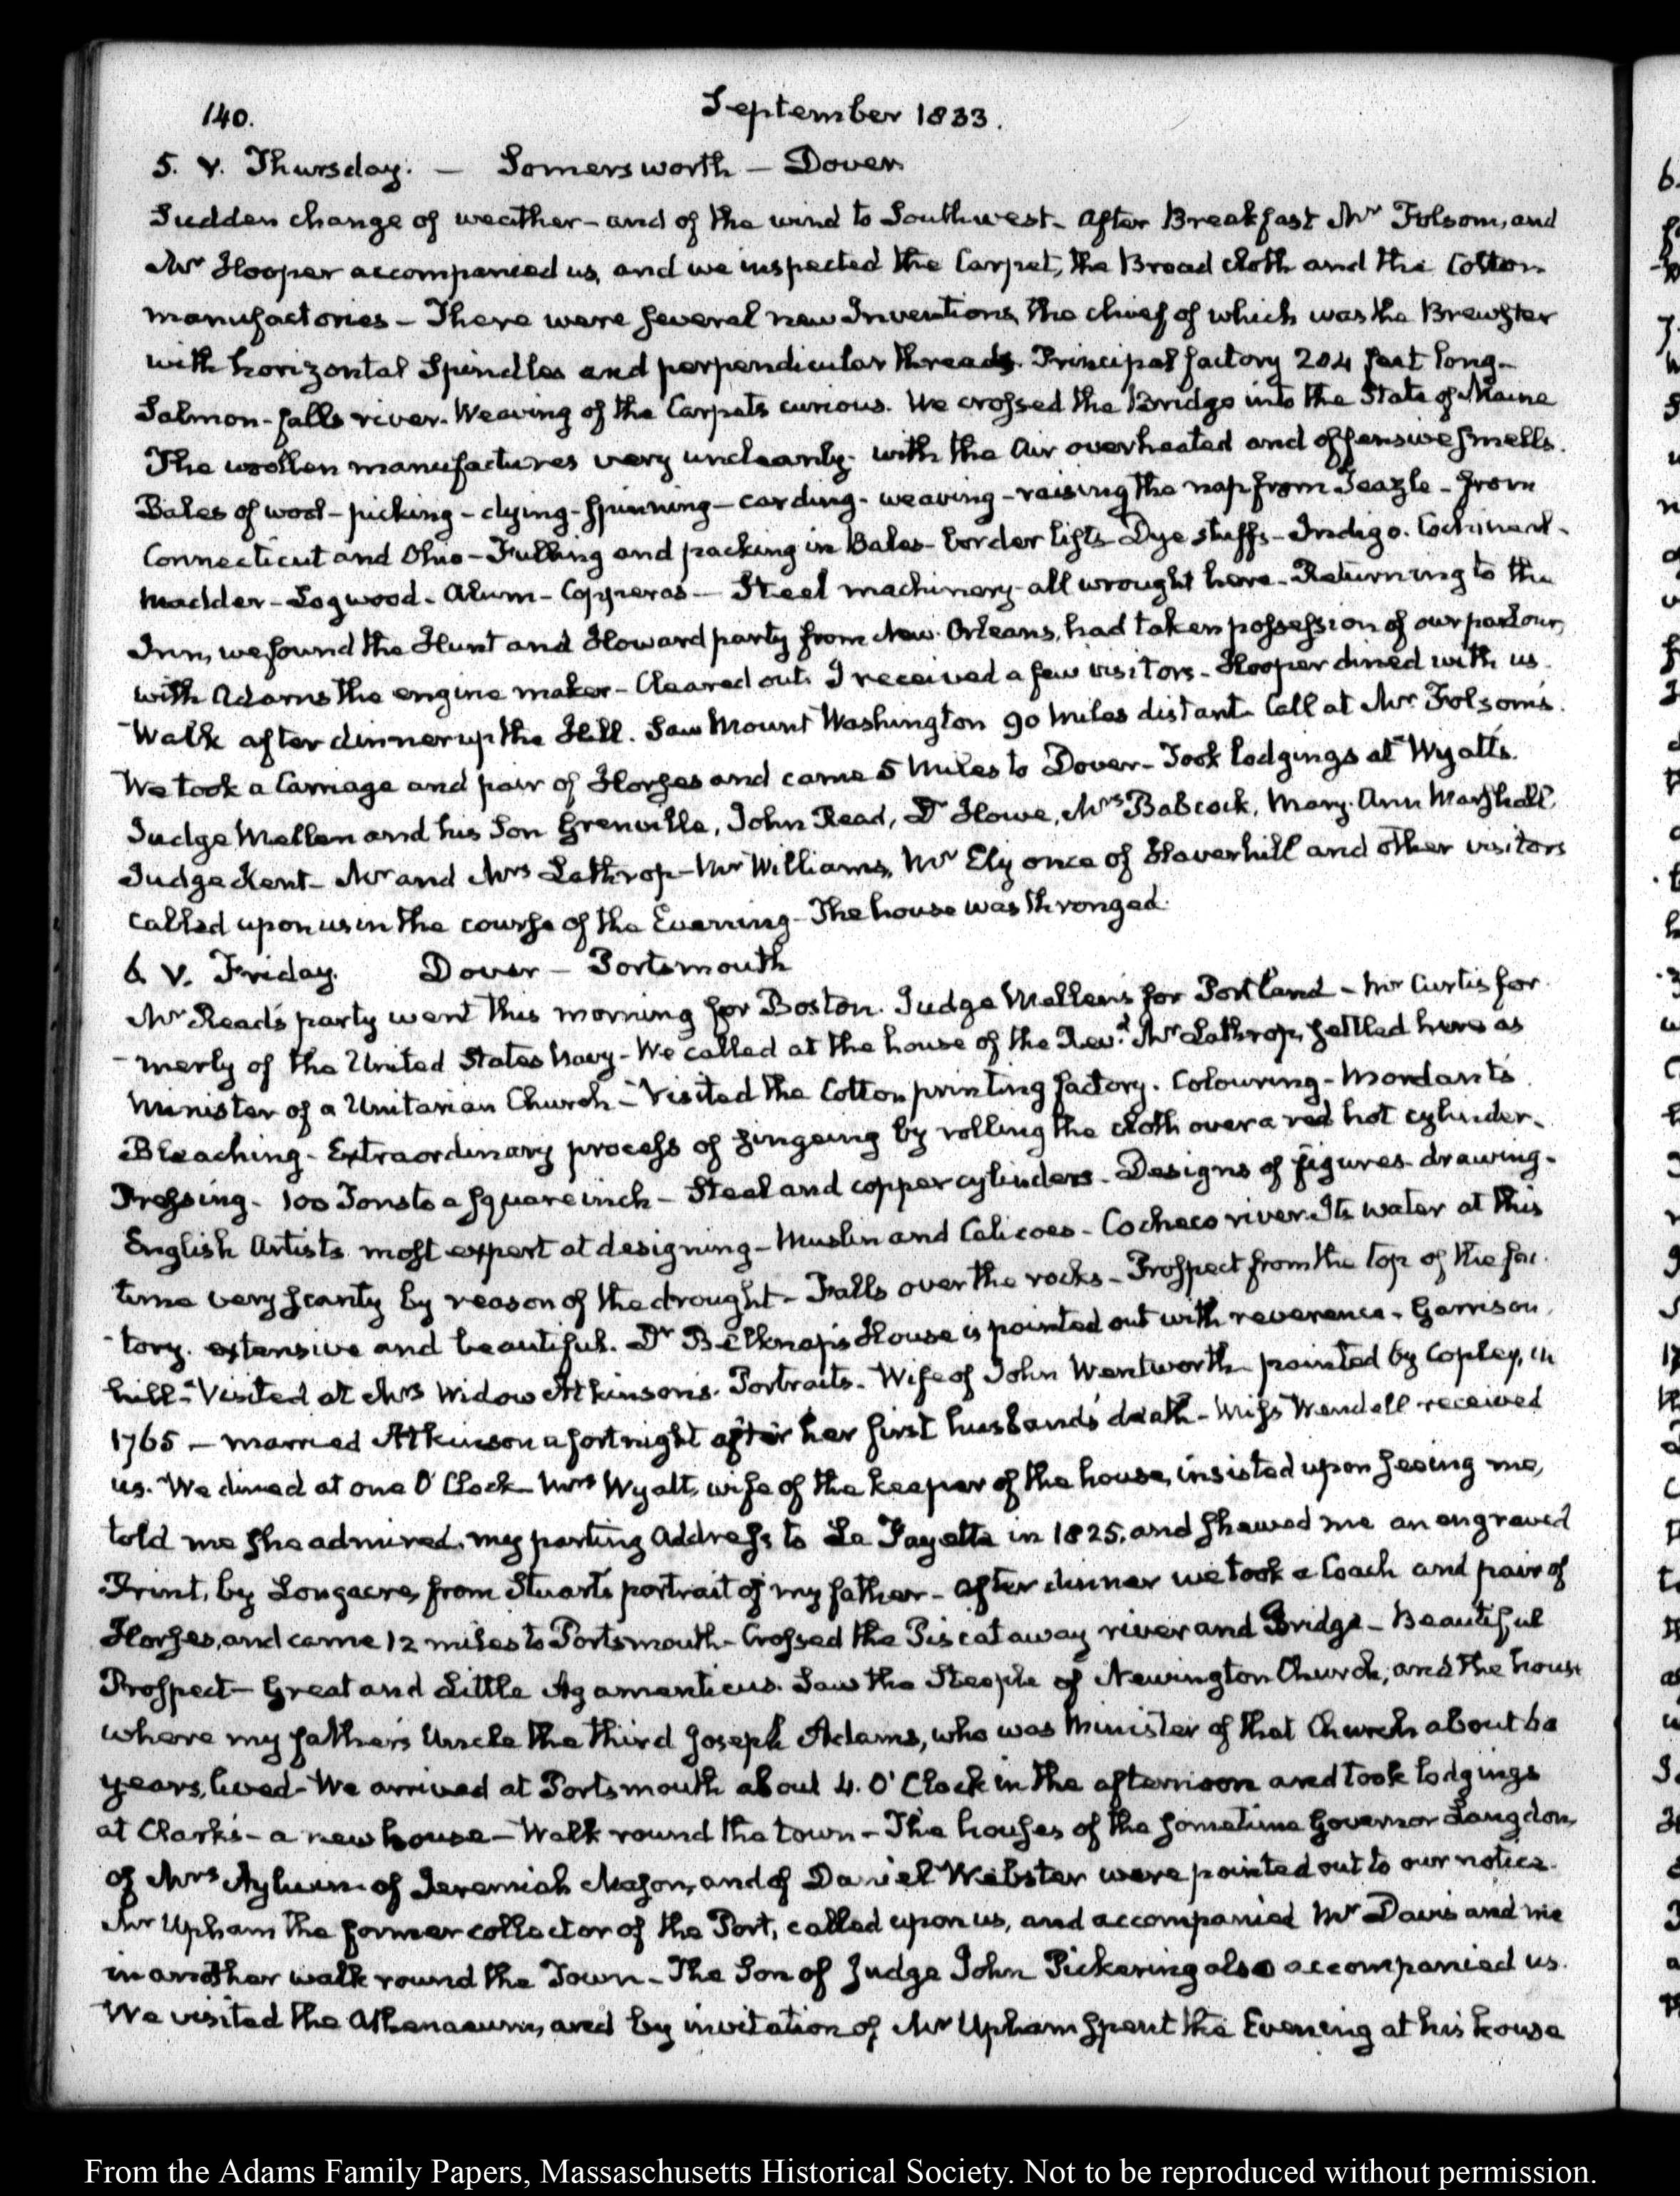 140.
September 1833.
5. V. Thursday. — Somersworth — Dover.
Sudden change of weather - and of the wind to Southwest - after Breakfast Mr Folsom, and
Mr Hooper accompanied us, and we inspected the Carpet, the Broad cloth and the Cotton
manufactories - There were several new Inventions, the chief of which was the Brewster
with horizontal Spindles and perpendicular threads. Principal factory 204 feet long -
Salmon-falls river. Weaving of the Carpets curious. We crossed the Bridge into the State of Maine
The wollen manufactures very uncleanly - with the Air overheated and offensive smells.
Bales of wool - picking - dying - spinning - carding - weaving - raising the nap from Teazle - from
Connecticut and Ohio - Fulling and packing in Bales - border lists - Dye stuffs - Indigo. Cochineal -
Madder - Logwood - Alum - Copperas — Steel machinery - all wrought here - Returning to the
Inn, we found the Hunt and Howard party from New Orleans, had taken possession of our parlour,
with Adams the engine maker - Cleared out. I received a few visitors - Hooper dined with us.
Walk after dinner up the Hill. Saw Mount Washington 90 miles distant. Call at Mr Folsom's.
We took a Carriage and pair of Horses and came 5 Miles to Dover - Took lodgings at Wyatt's.
Judge Mellen and his Son Grenville, John Read, Dr Howe, Mrs Babcock, Mary-Ann Marshall,
Judge Kent - Mr and Mrs Lathrop - Mr Williams, Mr Ely once of Haverhill and other visitors
called upon us in the course of the Evening - The house was thronged.
6. V. Friday. Dover — Portsmouth
Mr Read's party went this morning for Boston. Judge Mellen's for Portland - Mr Curtis for
-merly of the United States Navy - We called at the house of the Revd. Mr Lathrop, settled here as
Minister of a Unitarian Church - Visited the Cotton printing factory. Colouring - Mordants
Bleaching - Extraordinary process of singeing by rolling the cloth over a red hot cylinder -
Pressing - 100 Tons to a square inch - Steel and copper cylinders - Designs of figures - drawing -
English Artists most expert at designing - Muslin and Calicoes - Cocheco river. Its water at this
time very scanty by reason of the drought - Falls over the rocks - Prospect from the top of the fac
-tory - extensive and beautiful. Dr Belknap's House is pointed out with reverence - Garrison
hill - Visited at Mrs Widow Atkinson's. Portraits - Wife of John Wentworth painted by Copley, in
1765 — married Atkinson a fortnight after her first husband's death - Miss Wendell received
us. We dined at one O'Clock - Mrs Wyatt, wife of the keeper of the house, insisted upon seeing me,
told me she admired my parting Address to La Fayette in 1825, and shewed me an engraved
Print, by Longacre, from Stuart's portrait of my father - After dinner we took a Coach and pair of
Horses, and came 12 miles to Portsmouth - Crossed the Piscataway river and Bridge - Beautiful
Prospect - Great and Little Agamenticus. Saw the Steeple of Newington Church, and the house
where my father's Uncle the third Joseph Adams, who was Minister of that Church about 60
years, lived - We arrived at Portsmouth about 4. O'Clock in the afternoon and took lodgings
at Clark's - a new house - Walk round the town - The houses of the sometime Governor Langdon,
of Mrs Aylwin of Jeremiah Mason, and of Daniel Webster were pointed out to our notice.
Mr Upham the former collector of the Port, called upon us, and accompanied Mr Davis and me
in another walk round the Town - The Son of Judge John Pickering also accompanied us.
We visited the Athenaeum, and by invitation of Mr Upham spent the Evening at his house
From the Adams Family Papers, Massaschusetts Historical Society. Not to be reproduced without permission.